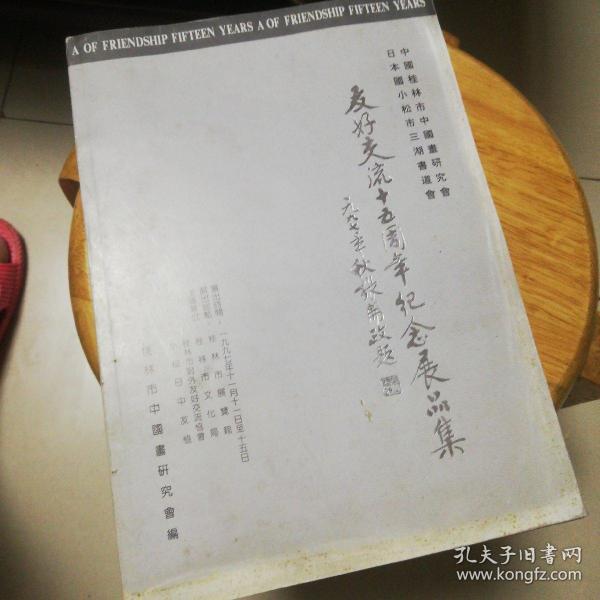 A OF FRIENDSHIP FIFTEEN YEARS A OF FRIENDSHIP FIFTEEN YEARS
中國桂林市中國畫研究會
日本國小松市三湖書道會
友好交流十五周年紀念展品集
展出時間：一九九七年十一月十一日至十五日
桂林市展覽館
桂林市文化局
桂林市對外友好交流協會
小松日中友協
桂林市中國畫研究會編
孔夫子旧书网
www.kongfz.com